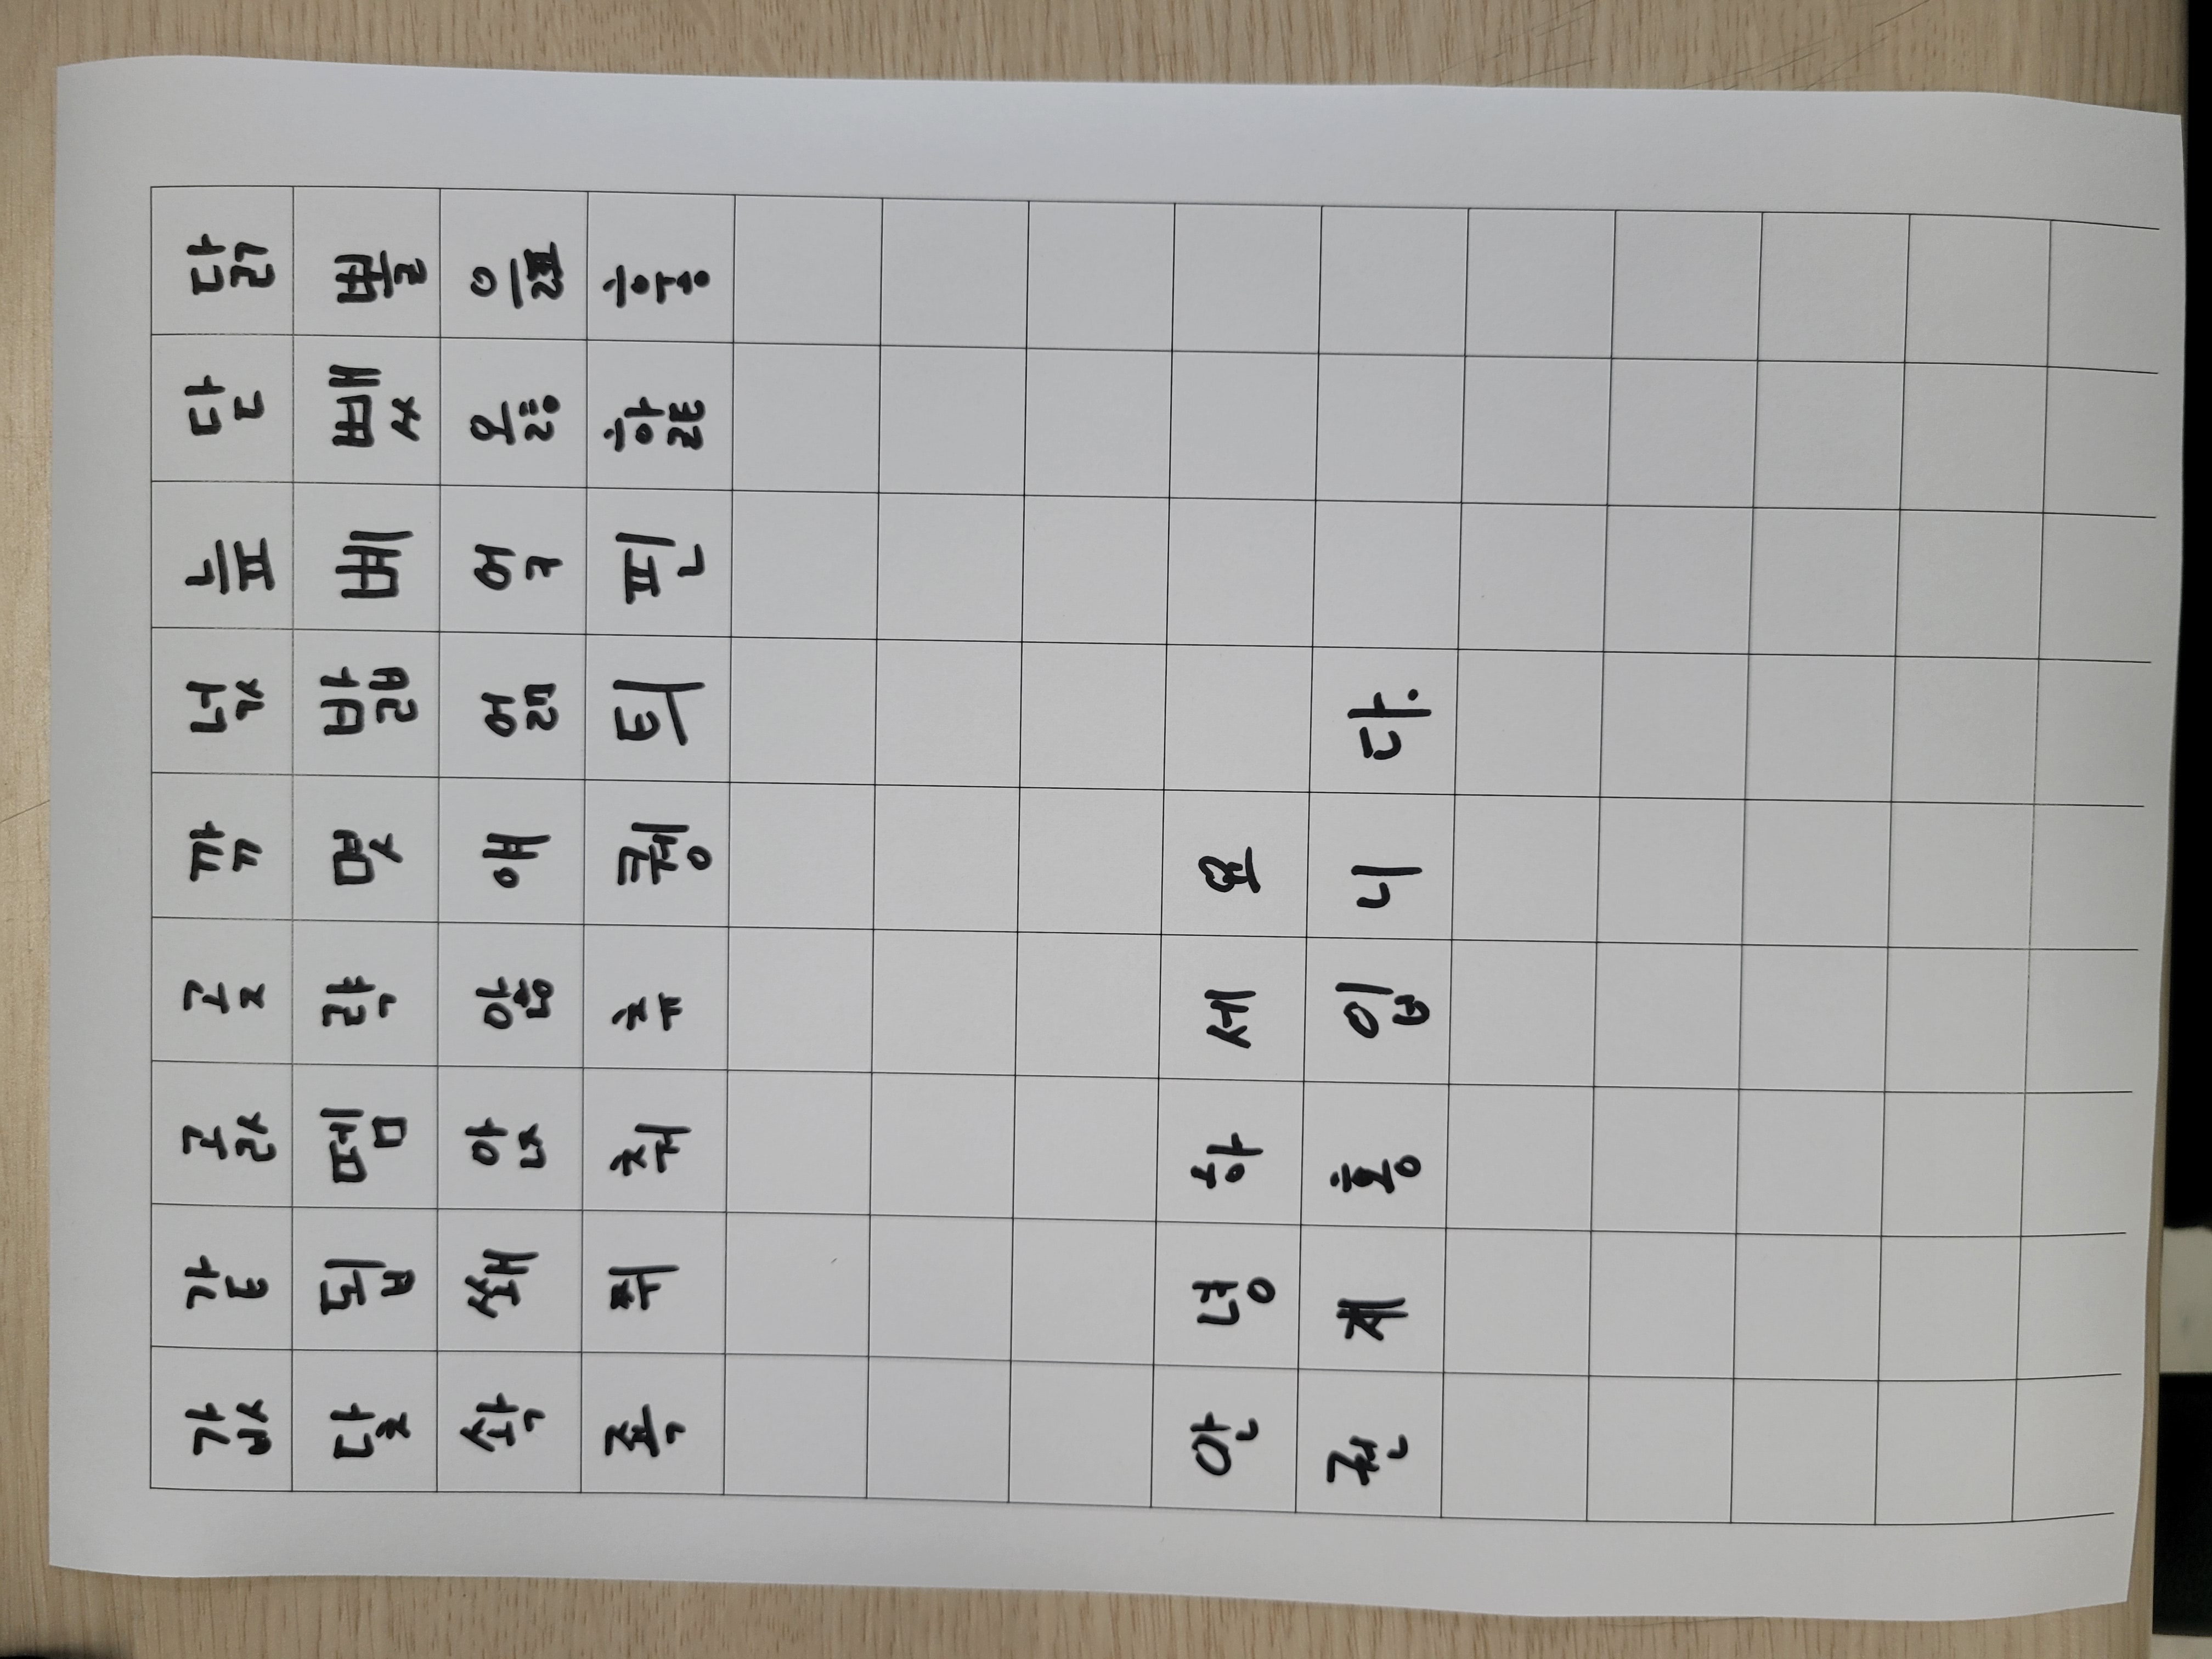 값 같 곬 곶 깎 넋 늪 닫 닭
닻 됩 뗌 략 몃 밟 볘 뺐 뾸
솩 쐐 앉 않 얘 얾 억 옳 읊
죡 쮜 춰 츄 퀭 틔 핀 핥 훙
안 녕 하 세 요
권 재 홍 입 니 다.